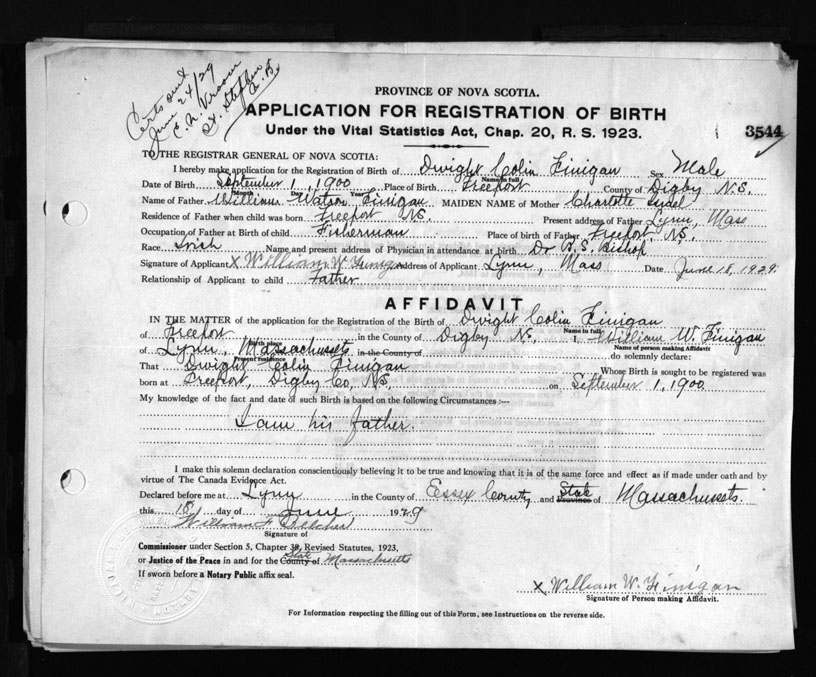 Certs out
June 24/29
C. N. Vroom
St. Stephen
N. B.
PROVINCE OF NOVA SCOTIA.
APPLICATION FOR REGISTRATION OF BIRTH
Under the Vital Statistics Act, Chap. 20, R. S. 1923.
3544
TO THE REGISTRAR GENERAL OF NOVA SCOTIA:
I hereby make application for the Registration of Birth of Dwight Colin Finigan Sex Male
Name in full
Date of Birth September 1, 1900 Place of Birth Freeport County of Digby N.S.
Month Day Year
Name of Father William Watson Finigan MAIDEN NAME of Mother Charlotte
Residence of Father when child was born Freeport N.S. Present address of Father Lynn, Mass
Occupation of Father at Birth of child Fisherman Place of birth of Father Freeport N.S.
Race Irish Name and present address of Physician in attendance at birth Dr Bishop
Signature of Applicant X William W. Finigan Address of Applicant Lynn, Mass Date June 18, 1929.
Relationship of Applicant to child Father
AFFIDAVIT
IN THE MATTER of the application for the Registration of Birth of Dwight Colin Finigan
Name in full
of Freeport in the County of Digby N.S. I, William W. Finigan
Birth place Name of person making Affidavit
of Lynn, Massachusetts in the County of do solemnly declare:
Present residence
That Dwight Colin Finigan Whose Birth is sought to be registered was
born at Freeport, Digby Co, N.S. on September 1, 1900
My knowledge of the fact and date of such Birth is based on the following Circumstances :—
I am his father.
I make this solemn declaration conscientiously believing it to be true and knowing that it is of the same force and effect as if made under oath and by
virtue of The Canada Evidence Act.
Declared before me at Lynn in the County of Essex County and State Province of Massachusetts
this 18 day of June 1929
William F.
Signature of
Commissioner under Section 5, Chapter 39, Revised Statutes, 1923,
or Justice of the Peace in and for the State County of Massachusetts
If sworn before a Notary Public affix seal.
X William W. Finigan
Signature of Person making Affidavit.
For Information respecting the filling out of this Form, see Instructions on the reverse side.